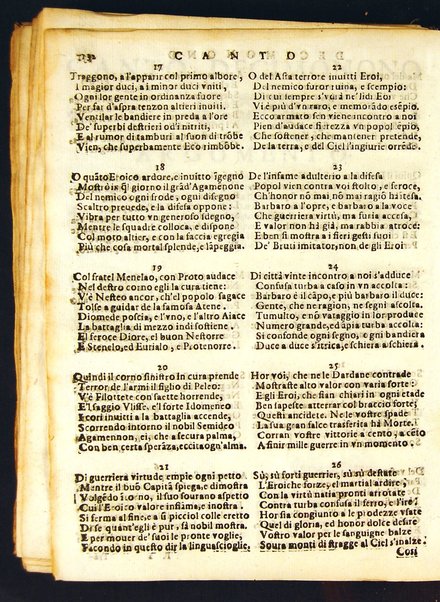 CANTO
17
Traggono, a l'apparir col primo albore,
I magior duci, a i minor duci vniti,
Ogni lor gente in ordinanza fuore
Per far d'aspra tenzon altieri inuiti.
Ventilar le bandiere in preda a l'ore
De' superbi destrieri odi i nitriti,
E al rumor di tamburi al suon di trõbe
Vien, che superbamente Eco rimbõbe.
18
O quãto Eroico ardore, e inuitto sdegno
Mostrò in q̃l giorno il grãd'Agamenone
Del nemico ogni frode, ogni disegno
Scaltro preuede, e la difesa oppone:
Vibra per tutto vn generoso sdegno,
Mentre le squadre colloca, e dispone
Col moto altier, e con la faccia egregia
Più che cosa mortal splende, e lãpeggia.
19
Col fratel Menelao, con Proto audace
Nel destro corno egli la cura tiene:
V'è Nestor ancor, ch'el popolo sagace
Tolse a guidar de la famosa Atene.
Diomede poscia, e l'vno, e l'altro Aiace
La battaglia di mezzo indi sostiene.
E'l feroce Diore, el buon Nestorre
E Stenelo, ed Eurialo, e Protenorre.
20
Quindi il corno sinistro in cura prende
Terror de l'armi il figlio di Peleo:
V'è Pilottete con saette horrende,
E'l saggio Vlisse, e'l forte Idomeneo
E cori inuitti a la battaglia accende,
Scorrendo intorno il nobil Semideo
Agamennon, ei, che a secura palma,
Con ben certa sperãza, eccita ogn'alma.
21
Di guerriera virtude empie ogni petto
Mentre il buõ Capitã spiega, e dimostra
Volgẽdo itorno, il suo sourano aspetto
Cui l'Eroico valore infiãma, e inostra.
Si ferma al fine, e a sì picciol colle eretto
Disse quant'egli è pur, sà nobil mostra.
E per mouer de' suoi le pronte voglie,
Facondo in questo dir la lingua scioglie.
22
O del Asia terrore inuitti Eroi,
Del nemico furor ruina, e scempio:
Di cui tempre s'vdì ne' lidi Eoi
Vi è più d'vn raro, e memorãdo esẽpio.
Ecco armato sen viene incontro a noi
Pien d'audace fierezza vn popol ẽpio,
Che sostener, che mantener pretende,
De la terra, e del Ciel l'ingiurie orrẽde.
23
De l'infame adulterio a la difesa
Popol vien contra voi stolto, e feroce,
Ch'honor nõ mai nõ mai ragiõ ha itesa.
Barbaro a l'opre, e barbaro a la voce
Che guerriera virtù, ma furia accesa,
E valor non hà già, ma rabbia atroce:
Eben si mostra a i fieri gesti suoi
De' Bruti imitator, non de gli Eroi
24
Di città vinte incontro a noi s'adduce
Confusa turba a caso in vn accolta:
Barbaro è il cãpo, e più barbaro il duce:
Gente, che ne ragion, ne segni ascolta.
Tumulto, e nò valaggio in lor produce
Numero grande, ed ãpia turba accolta:
Si confonde ogni segno, e gni bandiera
Duce a duce s'itrica, e schiera a schiera.
25
Hor voi, che ne le Dardane contrade
Mostraste alto valor con varia sorte:
E gli Eroi, che fian chiari in ogni etade
Ben sapeste atterrar col braccio forte;
Questi ancidete. Ne le vostre spade
La sua gran falce trasferita hà Morte.
Corran vostre vittorie a cento, a cẽto
Afinir mille guerre in vn momento.
26
Sù, sù forti guerrier, sù sù destate
L'Eroiche forze, e'l martial ardire,
Con la virtù natia pronti arrotate
Contra turba confusa il ferro, e l'ire!
Hor sia congiunto a le prodezze vsate
Quel di gloria, ed honor dolce desire
Vostro valor per le sanguigne balze
Soura monti di stragge al Ciel s'inalze.
Così